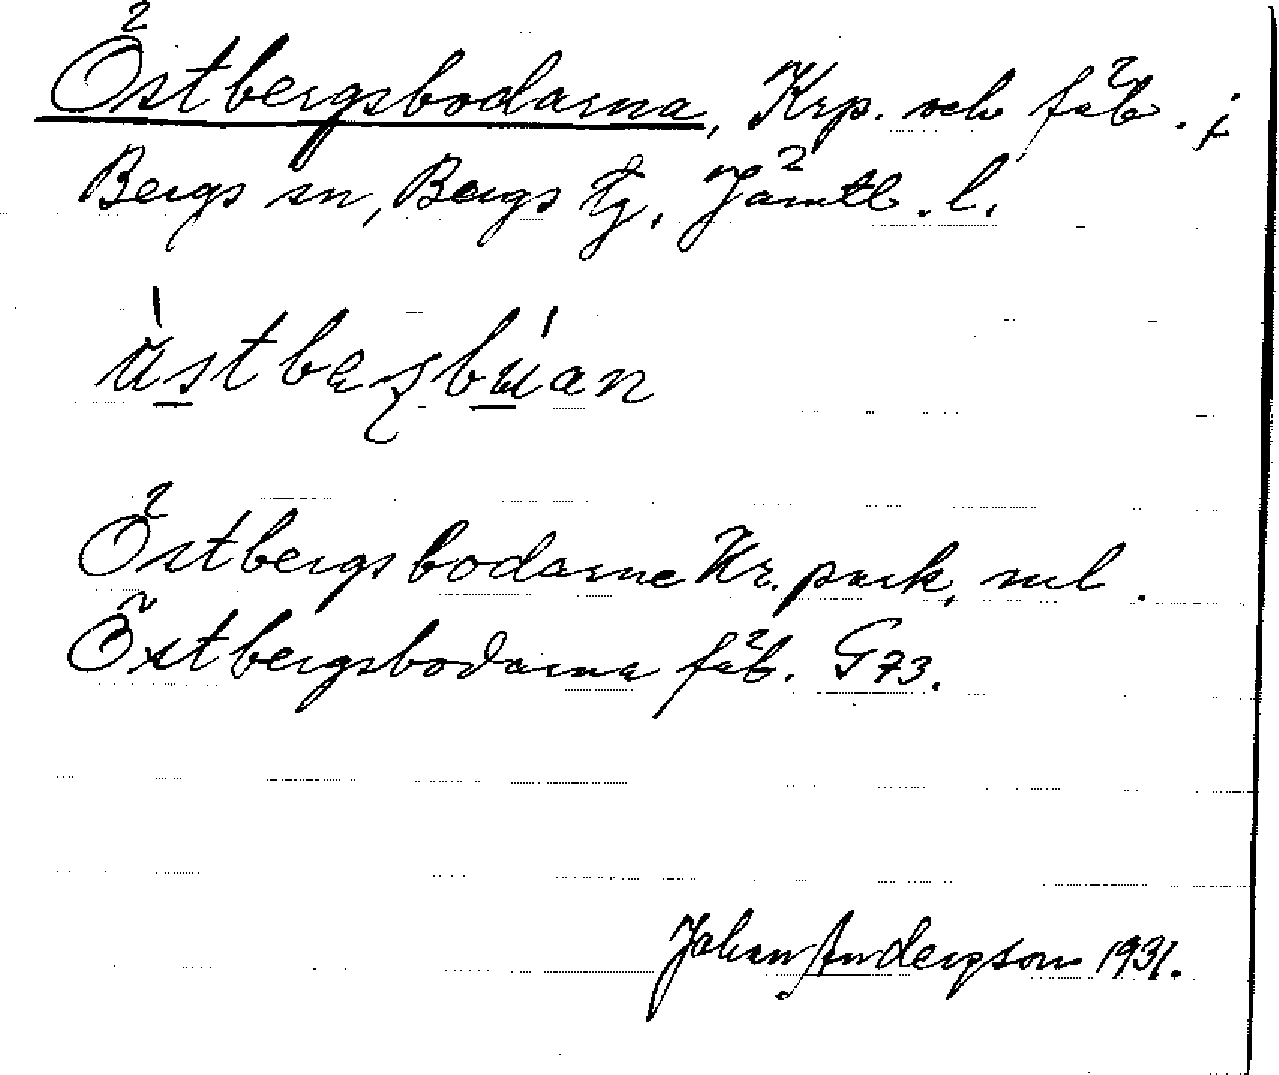 Östbergsbodarna, Krp. och fäb. i
Bergs sn, Bergs tg, Jämtl. l.
Östbergsbodarne Kr. park,
Östbergsbodarna fäb. G73.
Johan Andersson 1931.